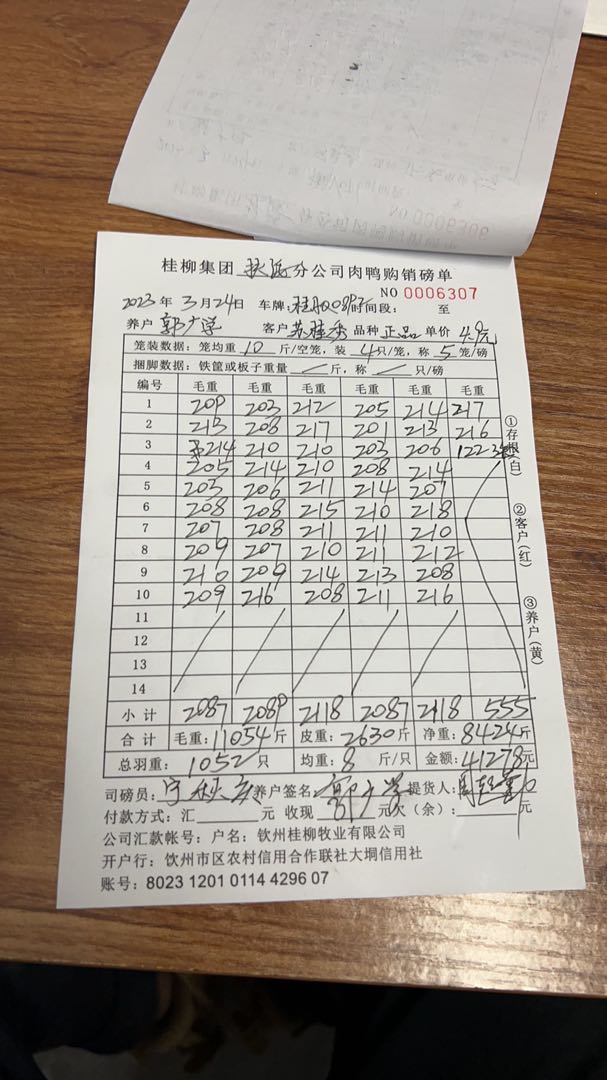 桂柳集团 分公司肉鸭购销磅单
NO 0006307
2023年 3月24日 车牌: 时间段: 至
养户 郭广学 客户 苏桂秀 品种 正品 单价 4.9元
笼装数据:笼均重 10 斤/空笼,装 4只/笼,称 5 笼/磅
捆脚数据:铁筐或板子重量 / 斤,称 / 只/磅
编号 毛重 毛重 毛重 毛重 毛重 毛重
1 209 203 212 205 214 217
2 213 208 217 201 213 216
3 214 210 210 203 206 122
4 205 214 210 208 214
5 203 206 211 214 207
6 208 208 215 210 218
7 207 208 211 211 210
8 209 207 210 211 212
9 210 209 214 213 208
10 209 216 208 211 216
11
12
13
14
小计 2087 2089 2118 2087 2118 555
合计 毛重:11054斤 皮重:2630斤 净重:8424斤
总羽重:1052只 均重:8 斤/只 金额:41278元
司磅员: 养户签名:郭广学 提货人:
付款方式:汇 元 收现 元欠(余): 元
公司汇款帐号:户名:钦州桂柳牧业有限公司
开户行:钦州市区农村信用合作联社大垌信用社
账号:8023 1201 0114 4296 07
①存根(白)
②客户(红)
③养户(黄)
NO 0006306